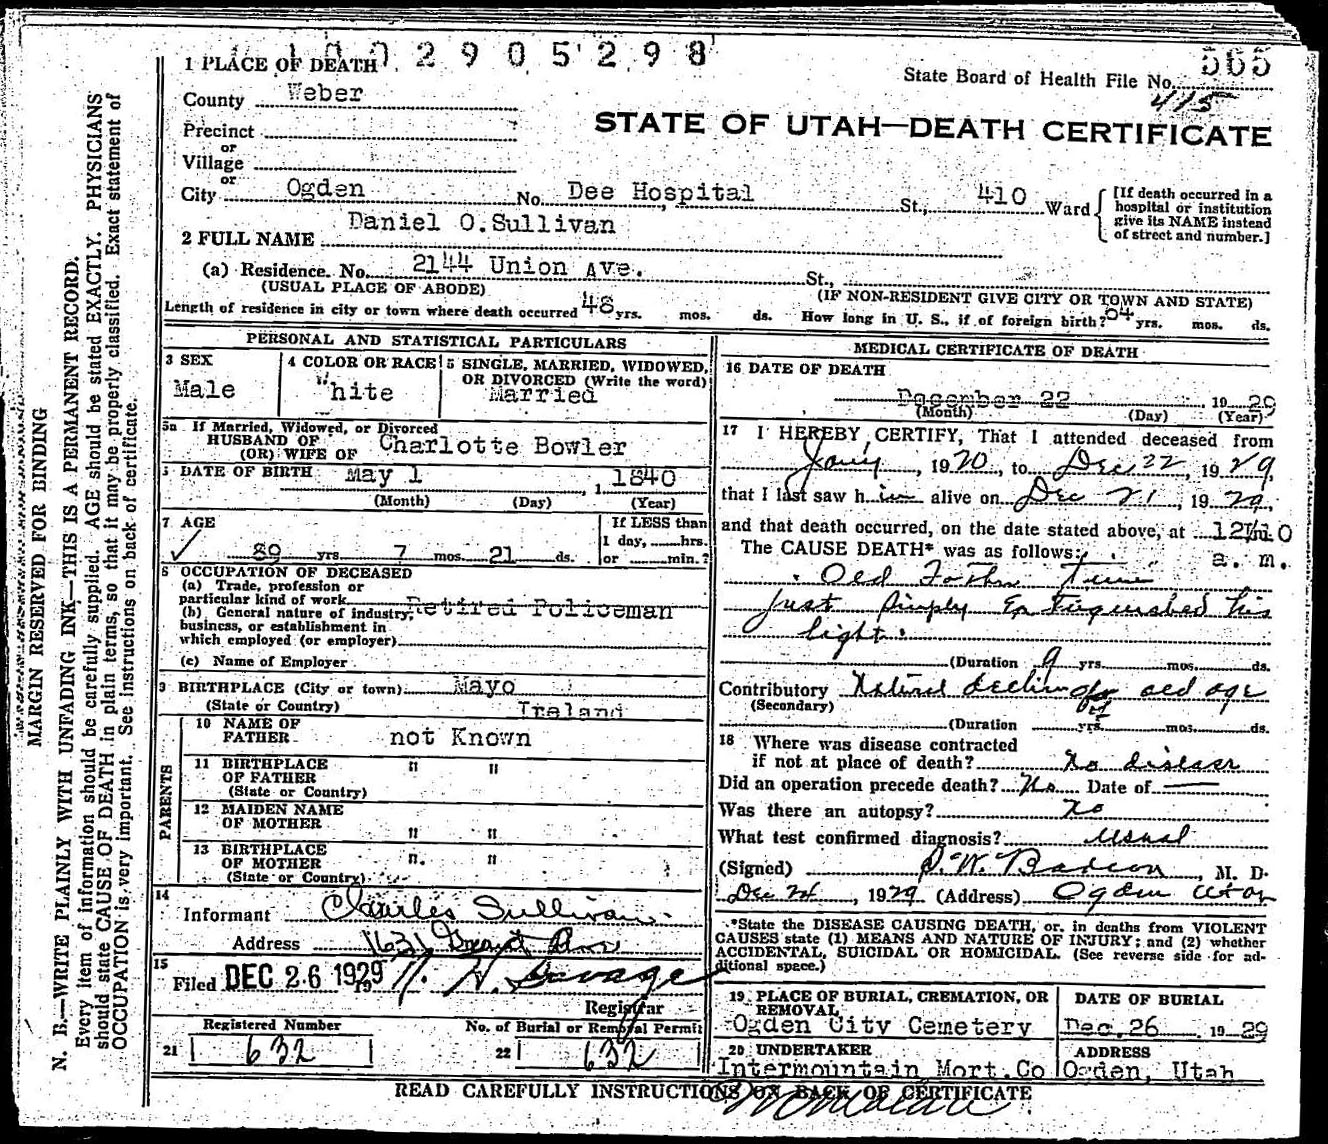 1002905298
1 PLACE OF DEATH
State Board of Health File No. 565
415
County Weber
STATE OF UTAH—DEATH CERTIFICATE
Precinct
or
Village
or
City Ogden No. Dee Hospital St., 410 Ward
[If death occurred in a
hospital or institution
give its NAME instead
of street and number.]
2 FULL NAME Daniel O.Sullivan
(a) Residence. No. 2144 Union Ave. St.,
(USUAL PLACE OF ABODE) (IF NON-RESIDENT GIVE CITY OR TOWN AND STATE)
Length of residence in city or town where death occurred 48 yrs. mos. ds. How long in U. S., if of foreign birth? yrs. mos. ds.
PERSONAL AND STATISTICAL PARTICULARS
3 SEX
Male
4 COLOR OR RACE
White
5 SINGLE, MARRIED, WIDOWED,
OR DIVORCED (Write the word)
Married
5a If Married, Widowed, or Divorced
HUSBAND OF
(OR) WIFE OF Charlotte Bowler
DATE OF BIRTH May 1, 1840
(Month) (Day) (Year)
7 AGE
89 yrs. 7 mos. 21 ds.
If LESS than
1 day, hrs.
or min.?
OCCUPATION OF DECEASED
(a) Trade, profession or
particular kind of work Retired Policeman
(b) General nature of industry,
business, or establishment in
which employed (or employer)
(c) Name of Employer
9 BIRTHPLACE (City or town) Mayo
(State or Country) Ireland
PARENTS
10 NAME OF
FATHER not Known
11 BIRTHPLACE
OF FATHER " "
(State or Country)
12 MAIDEN NAME
OF MOTHER " "
13 BIRTHPLACE
OF MOTHER " "
(State or Country)
14
Informant Charles Sullivan
Address 1631 Grant Ave
15
Filed DEC 26 1929
Registrar
Registered Number
21 632
No. of Burial or Removal Permit
22 632
MEDICAL CERTIFICATE OF DEATH
16 DATE OF DEATH
December 22, 1929
(Month) (Day) (Year)
17 I HEREBY CERTIFY, That I attended deceased from
Jany, 1920, to Dec 22, 1929,
that I last saw him alive on Dec 21, 1929,
and that death occurred, on the date stated above, at
a. m.
The CAUSE DEATH* was as follows:
Old Father Time
just simply Extinguished his
light.
(Duration 9 yrs. mos. ds.
Contributory Natural decline of old age
(Secondary)
(Duration yrs. mos. ds.
18 Where was disease contracted
if not at place of death? No disease
Did an operation precede death? No Date of —
Was there an autopsy? No
What test confirmed diagnosis? Usual
(Signed) M. D.
Dec 24, 1929 (Address) Ogden Utah
*State the DISEASE CAUSING DEATH, or, in deaths from VIOLENT
CAUSES state (1) MEANS AND NATURE OF INJURY; and (2) whether
ACCIDENTAL, SUICIDAL OR HOMICIDAL. (See reverse side for ad-
ditional space.)
19 PLACE OF BURIAL, CREMATION, OR
REMOVAL
Ogden City Cemetery
DATE OF BURIAL
Dec.26 1929
20 UNDERTAKER
Intermountain Mort.Co
ADDRESS
Ogden, Utah
READ CAREFULLY INSTRUCTIONS ON BACK OF CERTIFICATE
MARGIN RESERVED FOR BINDING
N. B.—WRITE PLAINLY WITH UNFADING INK—THIS IS A PERMANENT RECORD.
Every item of information should be carefully supplied. AGE should be stated EXACTLY. PHYSICIANS
should state CAUSE OF DEATH in plain terms, so that it may be properly classified. Exact statement of
OCCUPATION is very important. See instructions on back of certificate.